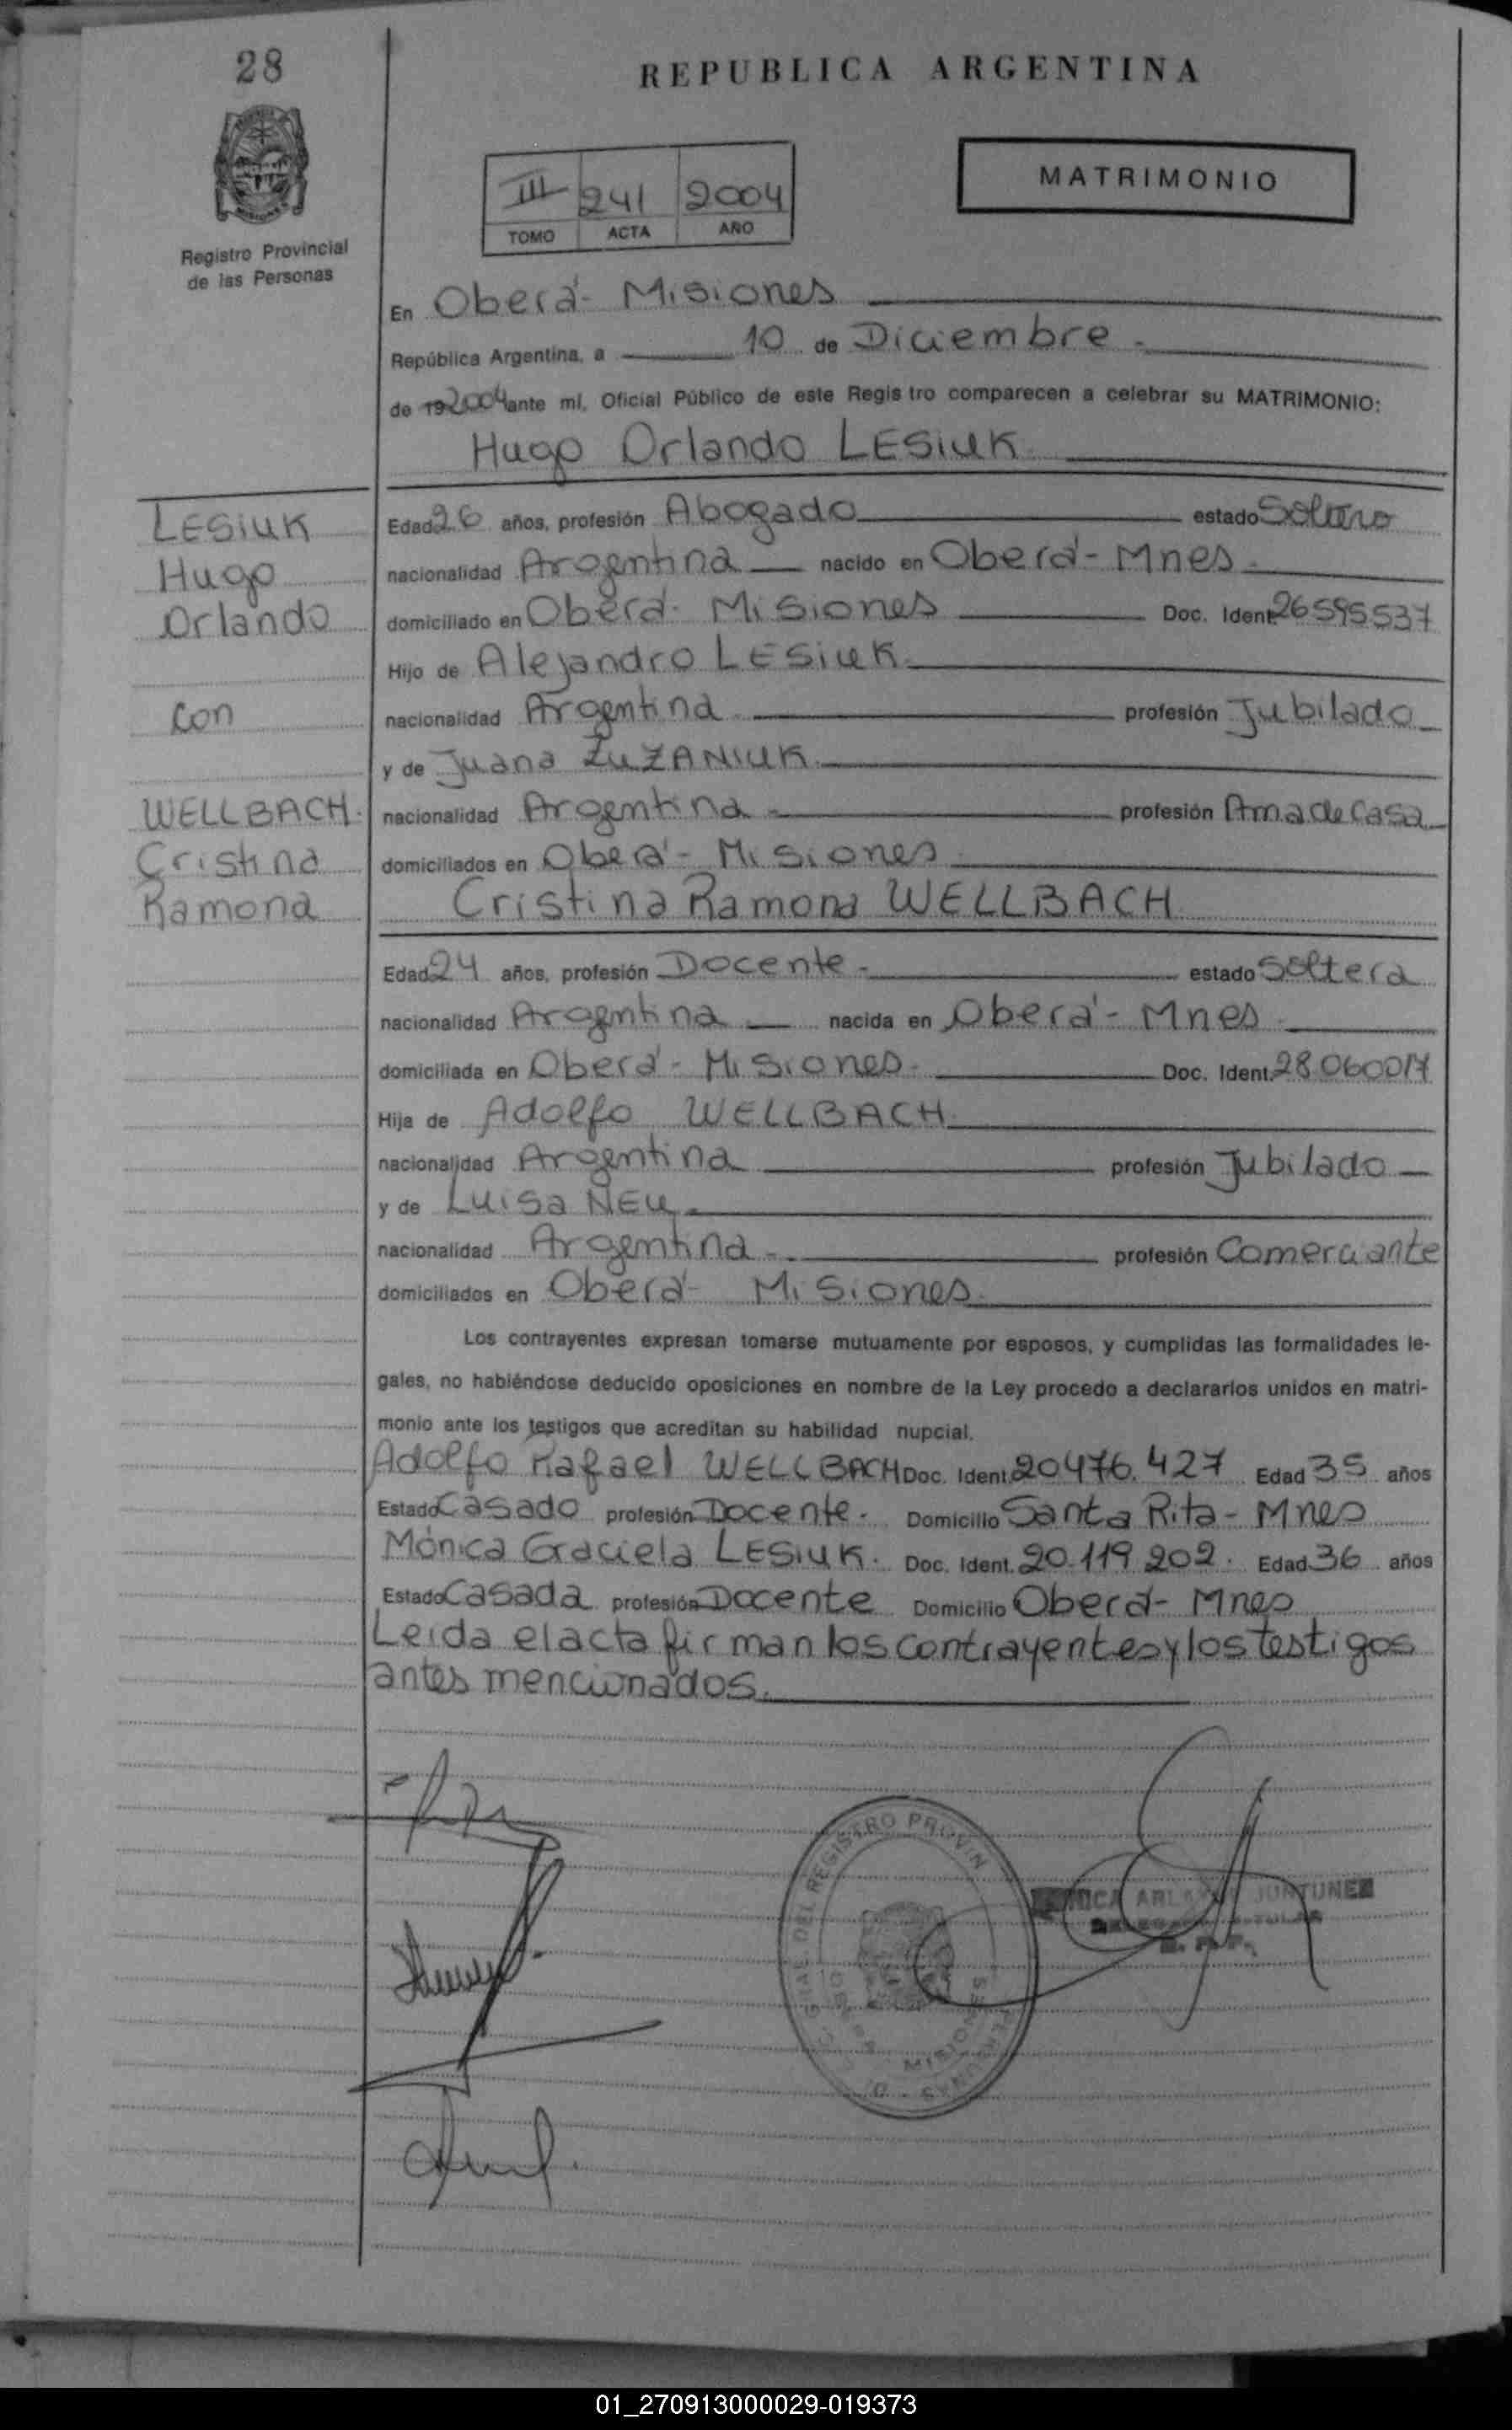 28
REPUBLICA ARGENTINA
III 241 2004
TOMO ACTA AÑO
MATRIMONIO
Registro Provincial
de las Personas
En Oberá - Misiones
República Argentina, a 10 de Diciembre -
de 19 2004 ante mí, Oficial Público de este Registro comparecen a celebrar su MATRIMONIO:
Hugo Orlando LESIUK
LESIUK
Hugo
Orlando
con
WELLBACH.
Cristina
Ramona
Edad 26 años, profesión Abogado estado Soltero
nacionalidad Argentina nacido en Oberá - Mnes -
domiciliado en Oberá - Misiones Doc. Ident. 26595537
Hijo de Alejandro LESIUK.
nacionalidad Argentina profesión Jubilado
y de Juana ZUZANIUK.
nacionalidad Argentina - profesión Ama de Casa
domiciliados en Oberá - Misiones -
Cristina Ramona WELLBACH
Edad 24 años, profesión Docente - estado Soltera
nacionalidad Argentina nacida en Oberá - Mnes -
domiciliada en Oberá - Misiones - Doc. Ident. 28.060017
Hija de Adolfo WELLBACH
nacionalidad Argentina profesión Jubilado
y de Luisa NEU.
nacionalidad Argentina - profesión Comerciante
domiciliados en Oberá - Misiones.
Los contrayentes expresan tomarse mutuamente por esposos, y cumplidas las formalidades le-
gales, no habiéndose deducido oposiciones en nombre de la Ley procedo a declararlos unidos en matri-
monio ante los testigos que acreditan su habilidad nupcial.
Adolfo Rafael WELLBACH Doc. Ident. 20476.427 Edad 35 años
Estado Casado profesión Docente - Domicilio Santa Rita - Mnes
Mónica Graciela LESIUK. Doc. Ident. 20.119.202. Edad 36 años
Estado Casada profesión Docente Domicilio Oberá - Mnes
Leida el acta firman los contrayentes y los testigos
antes mencionados.
GRAL. DEL REGISTRO PROVIN
PERSONAS
MISIONES
01_270913000029-019373